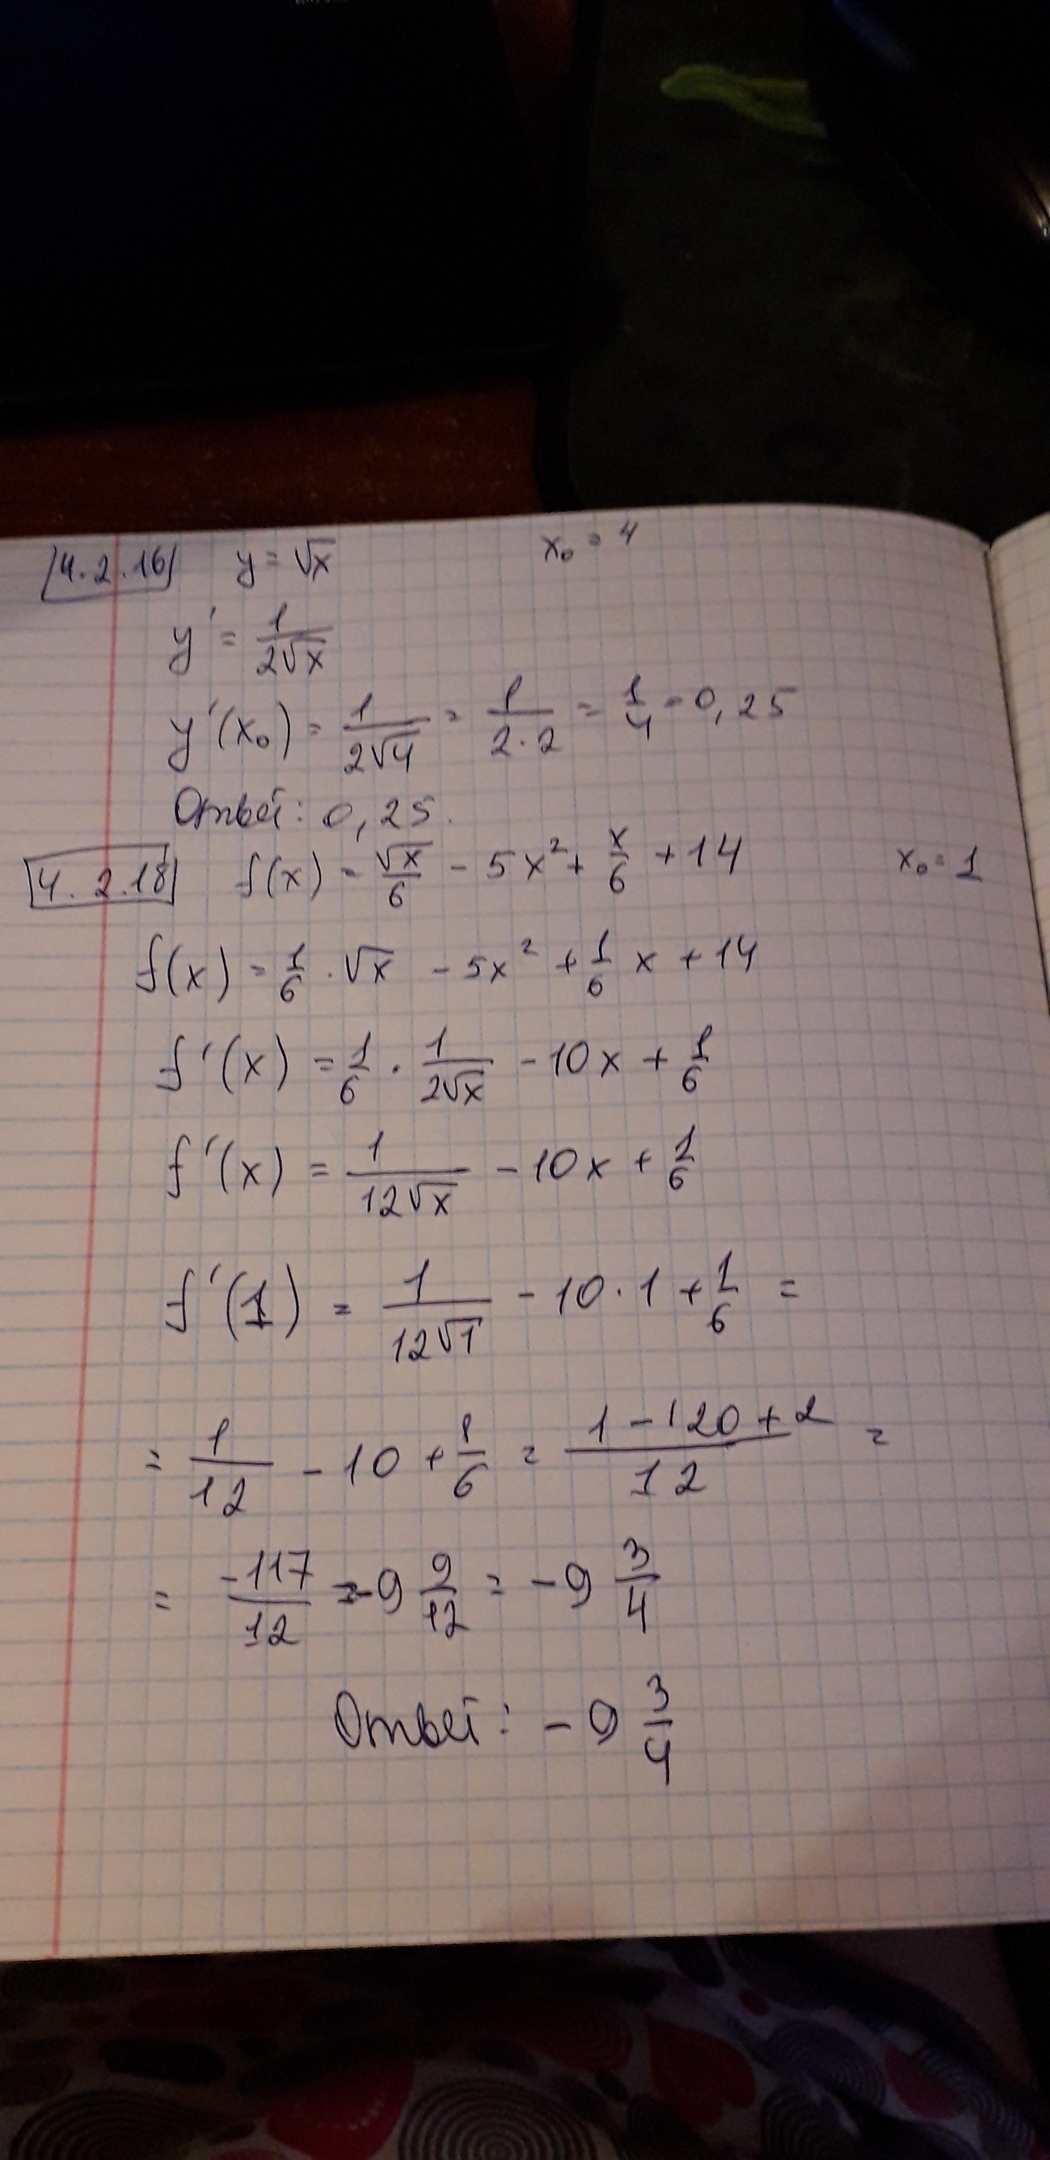 4.2.16 y = √x x₀ = 4
y' = 1/(2√x)
y'(x₀) = 1/(2√4) = 1/(2·2) = 1/4 = 0,25
Ответ: 0,25.
4.2.18 f(x) = √x/6 - 5x² + x/6 + 14 x₀ = 1
f(x) = 1/6 · √x - 5x² + 1/6 x + 14
f'(x) = 1/6 · 1/(2√x) - 10x + 1/6
f'(x) = 1/(12√x) - 10x + 1/6
f'(1) = 1/(12√1) - 10·1 + 1/6 =
= 1/12 - 10 + 1/6 = (1 - 120 + 2)/12 =
= -117/12 = -9 9/12 = -9 3/4
Ответ: -9 3/4